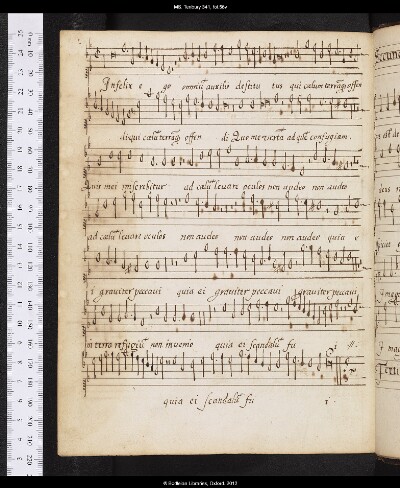 MS. Tenbury 341, fol.56v
Infelix e go omniũ auxilio destitu tus qui cælum terramq; offen
di qui cælũ terramq; offen di Quo me vertã ad quẽ confugiam.
mei miserebitur ad cælũ levare oculos non audeo non audeo
ad cælũ levare oculos non audeo non audeo non audeo quia e
i graviter peccavi quia ei graviter peccavi graviter peccavi
in terra refugiũ non invenio quia ei scandalũ fu i
quia ei scandalũ fu i
© Bodleian Libraries, Oxford, 2012